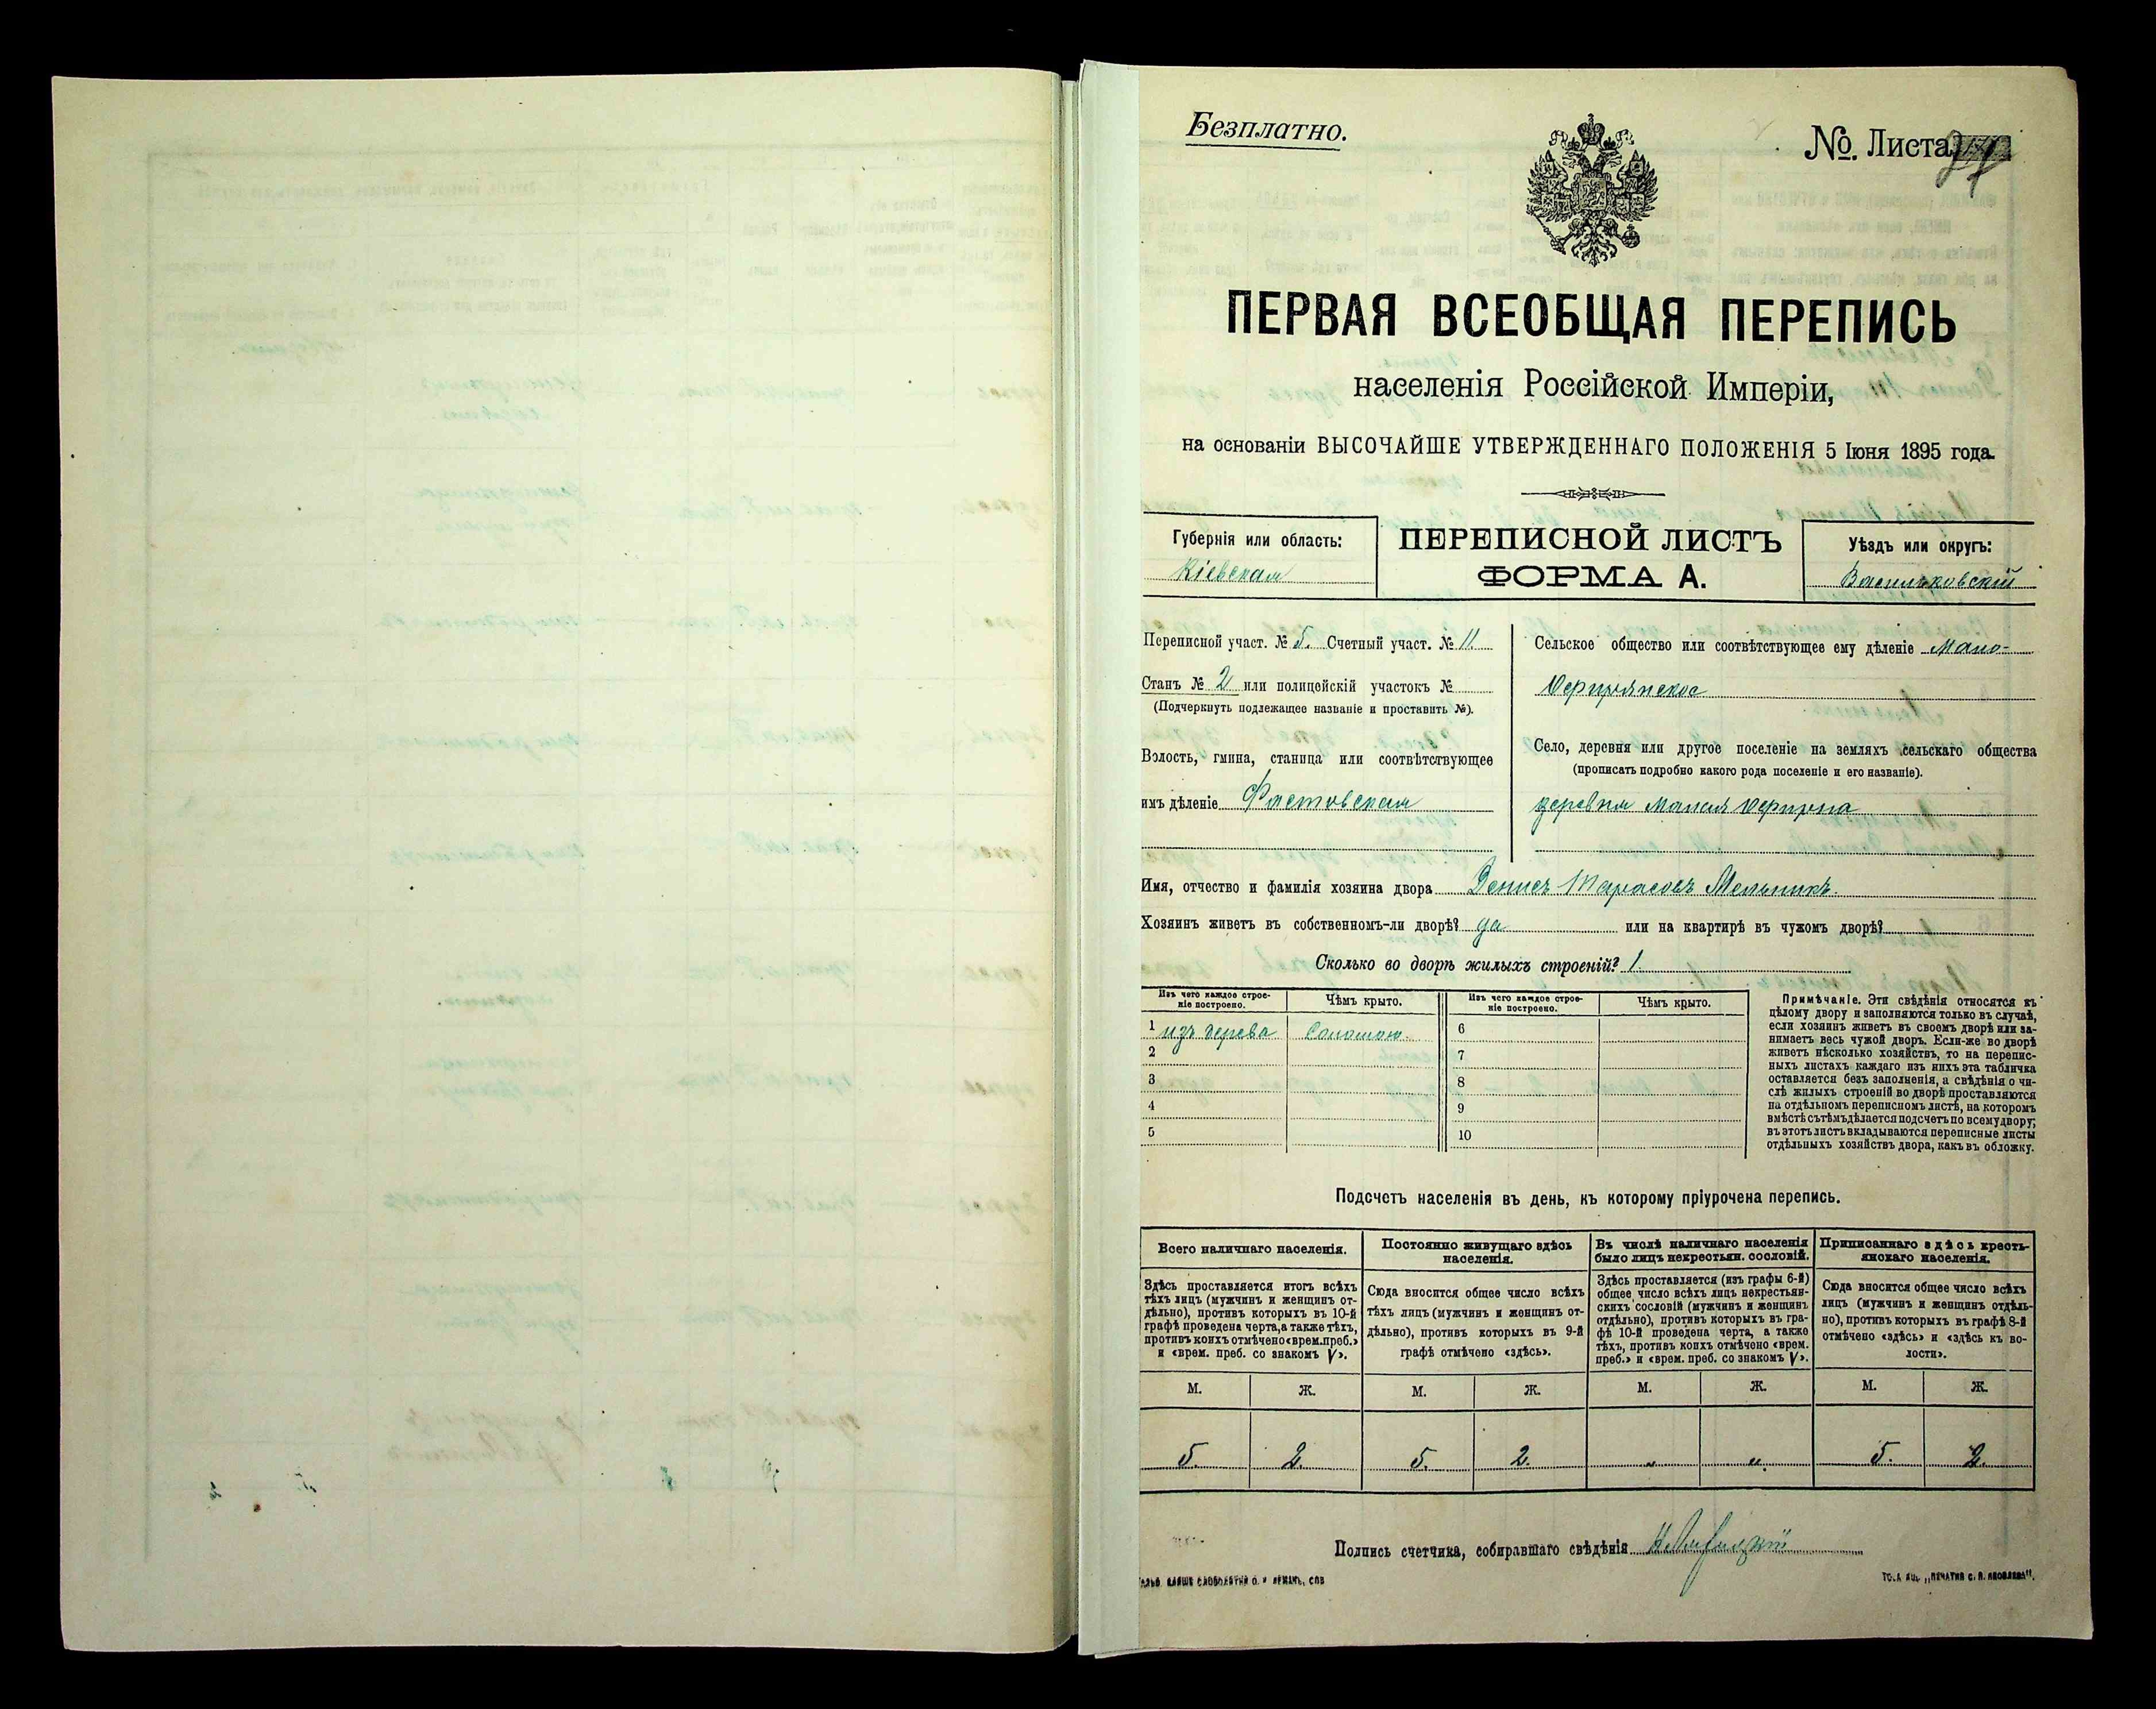 Безплатно.
№. Листа
ПЕРВАЯ ВСЕОБЩАЯ ПЕРЕПИСЬ
населенія Россійской Имперіи,
на основаніи ВЫСОЧАЙШЕ УТВЕРЖДЕННАГО ПОЛОЖЕНІЯ 5 Іюня 1895 года.
Губернія или область:
Кіевская
ПЕРЕПИСНОЙ ЛИСТЪ
ФОРМА А.
Уѣздъ или округъ:
Васильковскій
Переписной участ. № 5. Счетный участ. № 11.
Станъ № 2 или полицейскій участокъ №
(Подчеркнуть подлежащее названіе и проставить №).
Волость, гмина, станица или соотвѣтствующее
имъ дѣленіе Фастовская
Сельское общество или соотвѣтствующее ему дѣленіе Мало-
Село, деревня или другое поселеніе на земляхъ сельскаго общества
(прописать подробно какого рода поселеніе и его названіе).
деревня Малая
Имя, отчество и фамилія хозяина двора Денисъ Тарасовъ Мельникъ.
Хозяинъ живетъ въ собственномъ-ли дворѣ? да или на квартирѣ въ чужомъ дворѣ?
Сколько во дворѣ жилыхъ строеній? 1.
Изъ чего каждое строе-
ніе построено.
Чѣмъ крыто.
Изъ чего каждое строе-
ніе построено.
Чѣмъ крыто.
1 изъ дерева Соломою. 6
2 7
3 8
4 9
5 10
Примѣчаніе. Эти свѣдѣнія относятся къ
цѣлому двору и заполняются только въ случаѣ,
если хозяинъ живетъ въ своемъ дворѣ или за-
нимаетъ весь чужой дворъ. Если-же во дворѣ
живетъ нѣсколько хозяйствъ, то на перепис-
ныхъ листахъ каждаго изъ нихъ эта табличка
оставляется безъ заполненія, а свѣдѣнія о чи-
слѣ жилыхъ строеній во дворѣ проставляются
на отдѣльномъ переписномъ листѣ, на которомъ
вмѣстѣ съ тѣмъ дѣлается подсчетъ по всему двору;
въ этотъ листъ вкладываются переписные листы
отдѣльныхъ хозяйствъ двора, какъ въ обложку.
Подсчетъ населенія въ день, къ которому пріурочена перепись.
Всего наличнаго населенія.
Здѣсь проставляется итогъ всѣхъ
тѣхъ лицъ (мужчинъ и женщинъ от-
дѣльно), противъ которыхъ въ 10-й
графѣ проведена черта, а также тѣхъ,
противъ коихъ отмѣчено «врем. преб.»
и «врем. преб. со знакомъ V».
Постоянно живущаго здѣсь
населенія.
Сюда вносится общее число всѣхъ
тѣхъ лицъ (мужчинъ и женщинъ от-
дѣльно), противъ которыхъ въ 9-й
графѣ отмѣчено «здѣсь».
Въ числѣ наличнаго населенія
было лицъ некрестьян. сословій.
Здѣсь проставляется (изъ графы 6-й)
общее число всѣхъ лицъ некрестьян-
скихъ сословій (мужчинъ и женщинъ
отдѣльно), противъ которыхъ въ гра-
фѣ 10-й проведена черта, а также
тѣхъ, противъ коихъ отмѣчено «врем.
преб.» и «врем. преб. со знакомъ V».
Приписаннаго здѣсь кресть-
янскаго населенія.
Сюда вносится общее число всѣхъ
лицъ (мужчинъ и женщинъ отдѣль-
но), противъ которыхъ въ графѣ 8-й
отмѣчено «здѣсь» и «здѣсь къ во-
лости».
М. Ж. М. Ж. М. Ж. М. Ж.
5. 2. 5. 2. „ „ 5. 2.
Подпись счетчика, собиравшаго свѣдѣнія